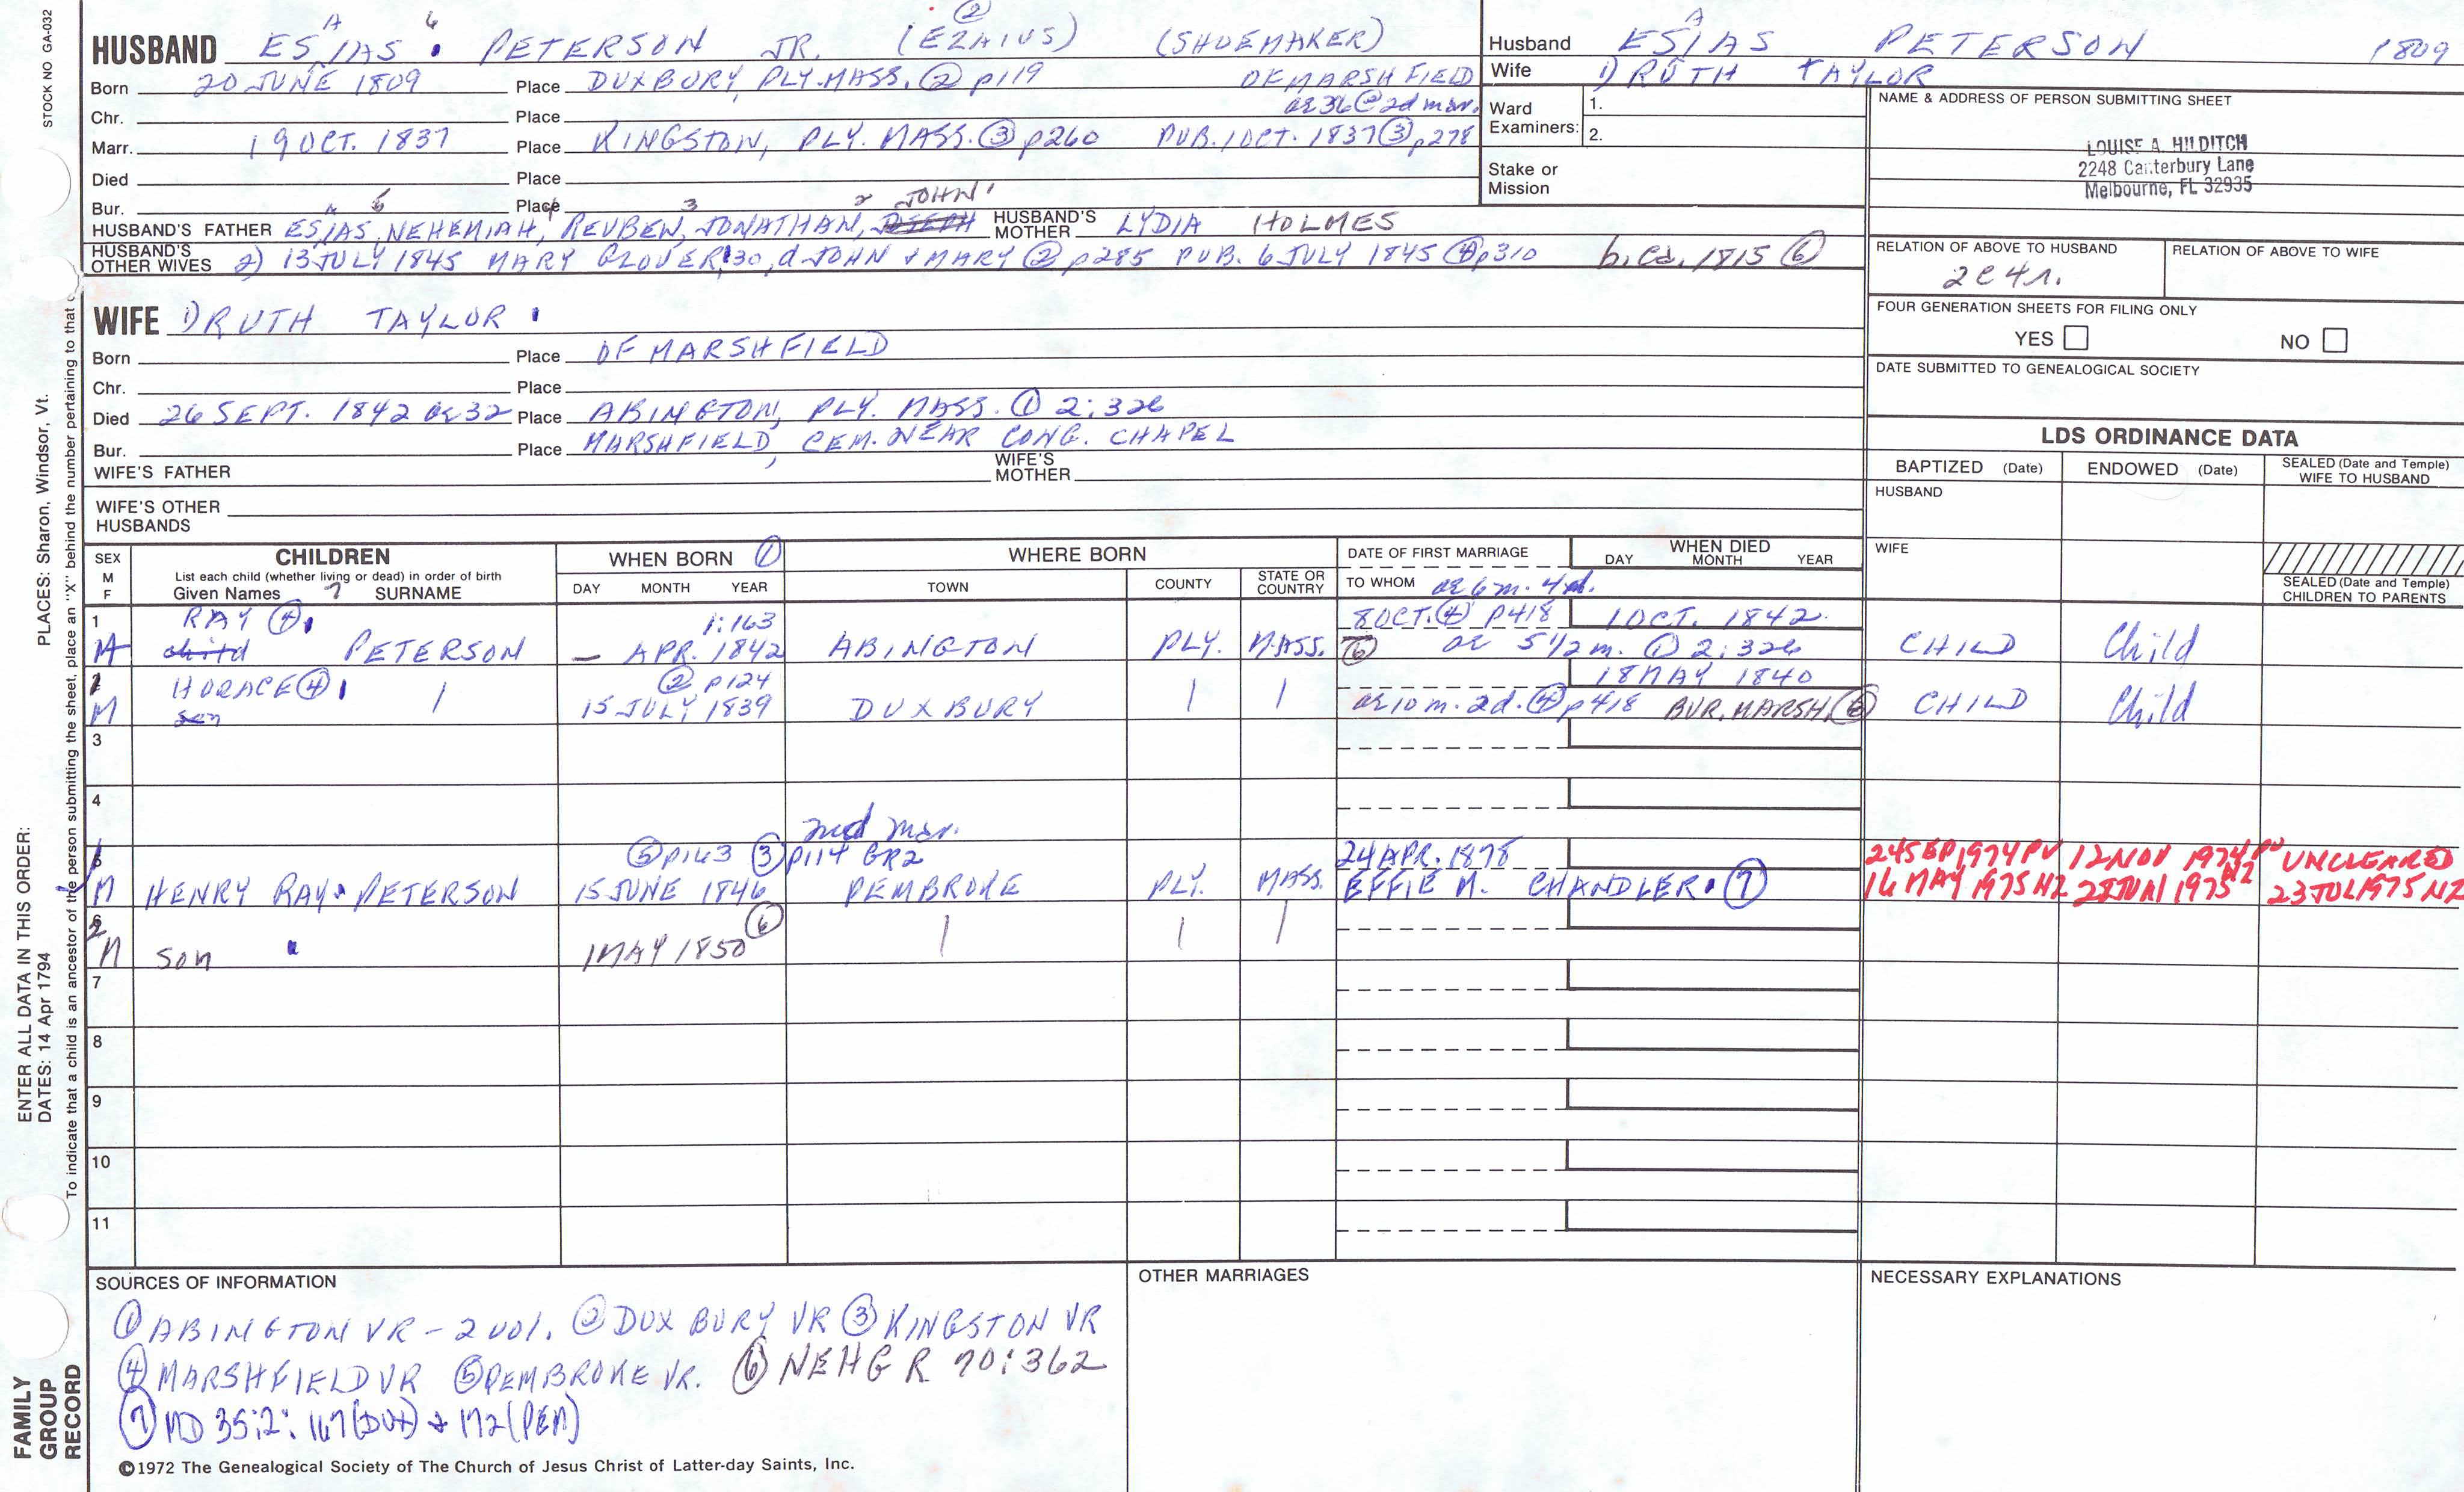 STOCK NO GA-032
PLACES: Sharon, Windsor, Vt.
ENTER ALL DATA IN THIS ORDER:
DATES: 14 Apr 1794
To indicate that a child is an ancestor of the person submitting the sheet, place an "X" behind the number pertaining to that c
FAMILY
GROUP
RECORD
A 6 ②
HUSBAND ESIAS PETERSON JR. (EZAIUS) (SHOEMAKER)
Born 20 JUNE 1809 Place DUXBURY, PLY. MASS. ② p119 OF MARSHFIELD
Chr. Place ae 36 @ 2d mar.
Marr. 19 OCT. 1837 Place KINGSTON, PLY. MASS. ③ p260 PUB. 1 OCT. 1837 ③ p278
Died Place
Bur. Place
A 5 4 3 2 JOHN 1
HUSBAND'S FATHER ESIAS, NEHEMIAH, REUBEN, JONATHAN, JOSEPH HUSBAND'S MOTHER LYDIA HOLMES
HUSBAND'S OTHER WIVES 2) 13 JULY 1845 MARY GLOVER, 30, d. JOHN & MARY ② p285 PUB. 6 JULY 1845 ④ p310 b. ca. 1815 ⑥
WIFE 1) RUTH TAYLOR
Born Place OF MARSHFIELD
Chr. Place
Died 26 SEPT. 1842 ae 32 Place ABINGTON, PLY. MASS. ① 2:326
Bur. Place MARSHFIELD, CEM. NEAR CONG. CHAPEL
WIFE'S FATHER WIFE'S MOTHER
WIFE'S OTHER HUSBANDS
A
Husband ESIAS PETERSON 1809
Wife 1) RUTH TAYLOR
Ward Examiners: 1.
2.
Stake or Mission
NAME & ADDRESS OF PERSON SUBMITTING SHEET
LOUISE A. HILDITCH
2248 Canterbury Lane
Melbourne, FL 32935
RELATION OF ABOVE TO HUSBAND RELATION OF ABOVE TO WIFE
2C4r.
FOUR GENERATION SHEETS FOR FILING ONLY
YES NO
DATE SUBMITTED TO GENEALOGICAL SOCIETY
LDS ORDINANCE DATA
BAPTIZED (Date) ENDOWED (Date) SEALED (Date and Temple) WIFE TO HUSBAND
HUSBAND
WIFE
SEALED (Date and Temple) CHILDREN TO PARENTS
SEX M F
CHILDREN
List each child (whether living or dead) in order of birth
Given Names SURNAME
WHEN BORN ①
DAY MONTH YEAR
WHERE BORN
TOWN COUNTY STATE OR COUNTRY
DATE OF FIRST MARRIAGE
TO WHOM
WHEN DIED
DAY MONTH YEAR
ae 6 m. 4 d.
1 RAY ④ 1:163 8 OCT. ④ p418 1 OCT. 1842
M child PETERSON — APR. 1842 ABINGTON PLY. MASS. ⑥ ae 5 1/2 m. ① 2:326 CHILD Child
2 HORACE ④ ② p124 18 MAY 1840
M son 15 JULY 1839 DUXBURY ae 10 m. 2 d. ④ p418 BUR. MARSH. ⑥ CHILD Child
3
4
2nd mar.
5 1 ⑤ p163 ③ p114 GR2 24 APR. 1878 24 SEP 1974 PV 12 NOV 1974 PV UNCLEARED
M HENRY RAY PETERSON 15 JUNE 1846 PEMBROKE PLY. MASS. EFFIE M. CHANDLER ⑦ 16 MAY 1975 NZ 1975 NZ 23 JUL 1975 NZ
6 2 ⑥
M son 1 MAY 1850
7
8
9
10
11
SOURCES OF INFORMATION
① ABINGTON VR - 2 vol. ② DUXBURY VR ③ KINGSTON VR
④ MARSHFIELD VR ⑤ PEMBROKE VR. ⑥ NEHGR 70:362
⑦ MD 35:2: 167 (DUX) & 172 (PEM)
OTHER MARRIAGES
NECESSARY EXPLANATIONS
©1972 The Genealogical Society of The Church of Jesus Christ of Latter-day Saints, Inc.